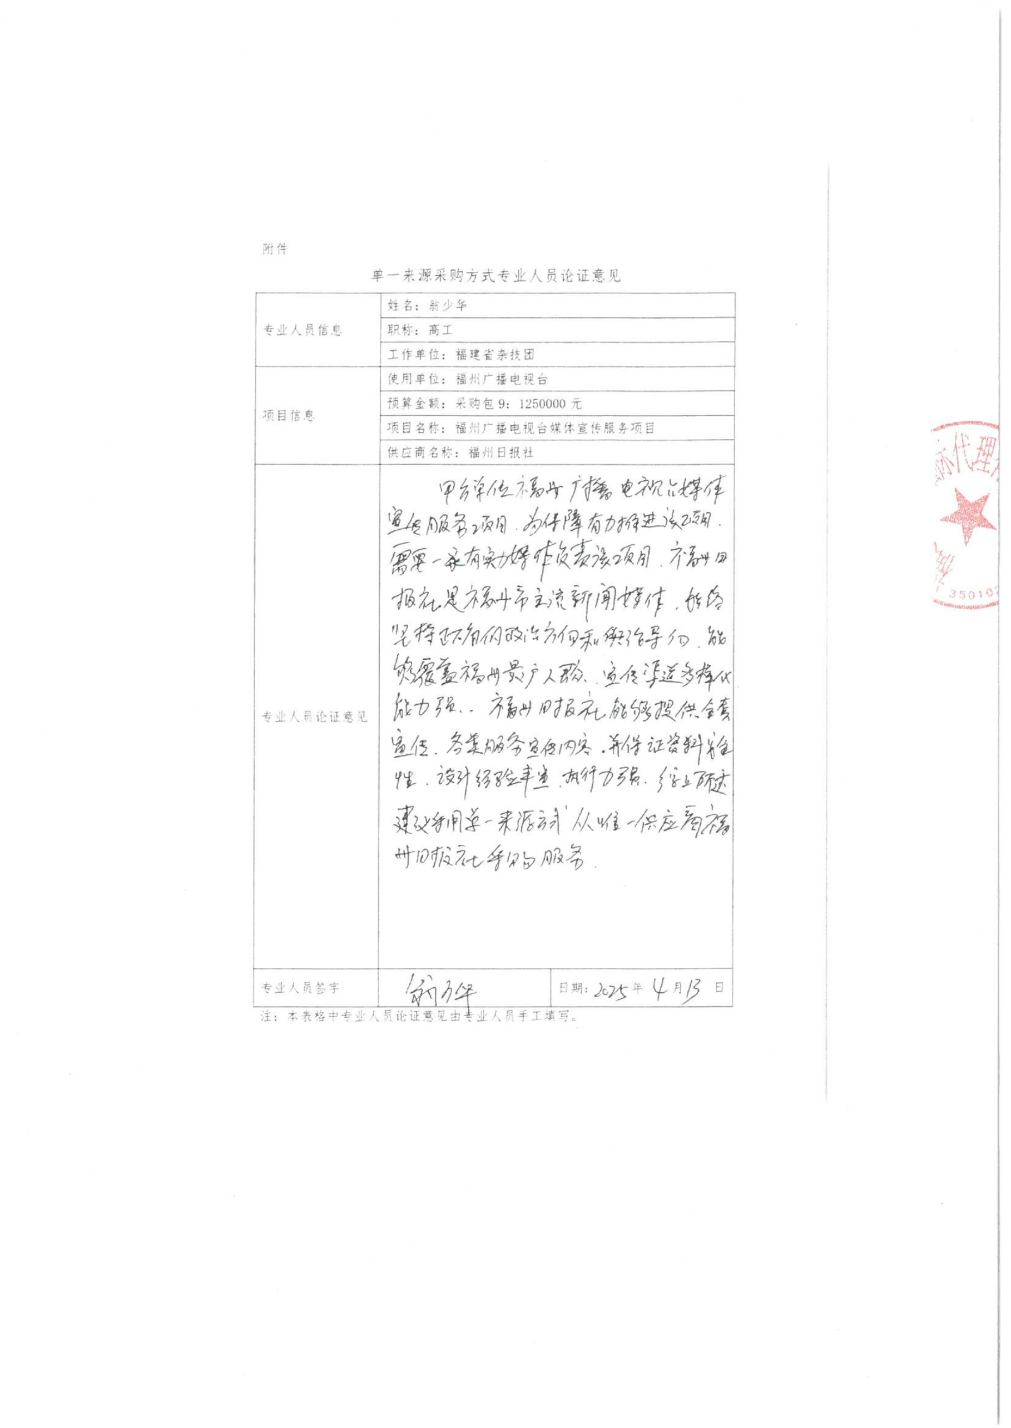 附件
单一来源采购方式专业人员论证意见
专业人员信息
姓名：翁少华
职称：高工
工作单位：福建省杂技团
项目信息
使用单位：福州广播电视台
预算金额：采购包9：1250000 元
项目名称：福州广播电视台媒体宣传服务项目
供应商名称：福州日报社
专业人员论证意见
单位福州广播电视台媒体
宣传服务项目，为保障有力推进该项目，
需要一家有实力媒体负责该项目，福州日
报社是福州市主流新闻媒体，始终
坚持正确的政治方向和舆论导向，能
够覆盖福州最广人群，宣传渠道多样化
能力强，福州日报社能够提供全套
宣传、各类服务宣传内容，并保证资料准全
性，设计经验丰富，执行力强，综上所述
建议采用单一来源方式从唯一供应商福
州日报社采购服务.
专业人员签字
日期：2025年 4月13日
注：本表格中专业人员论证意见由专业人员手工填写。
标代理
35010